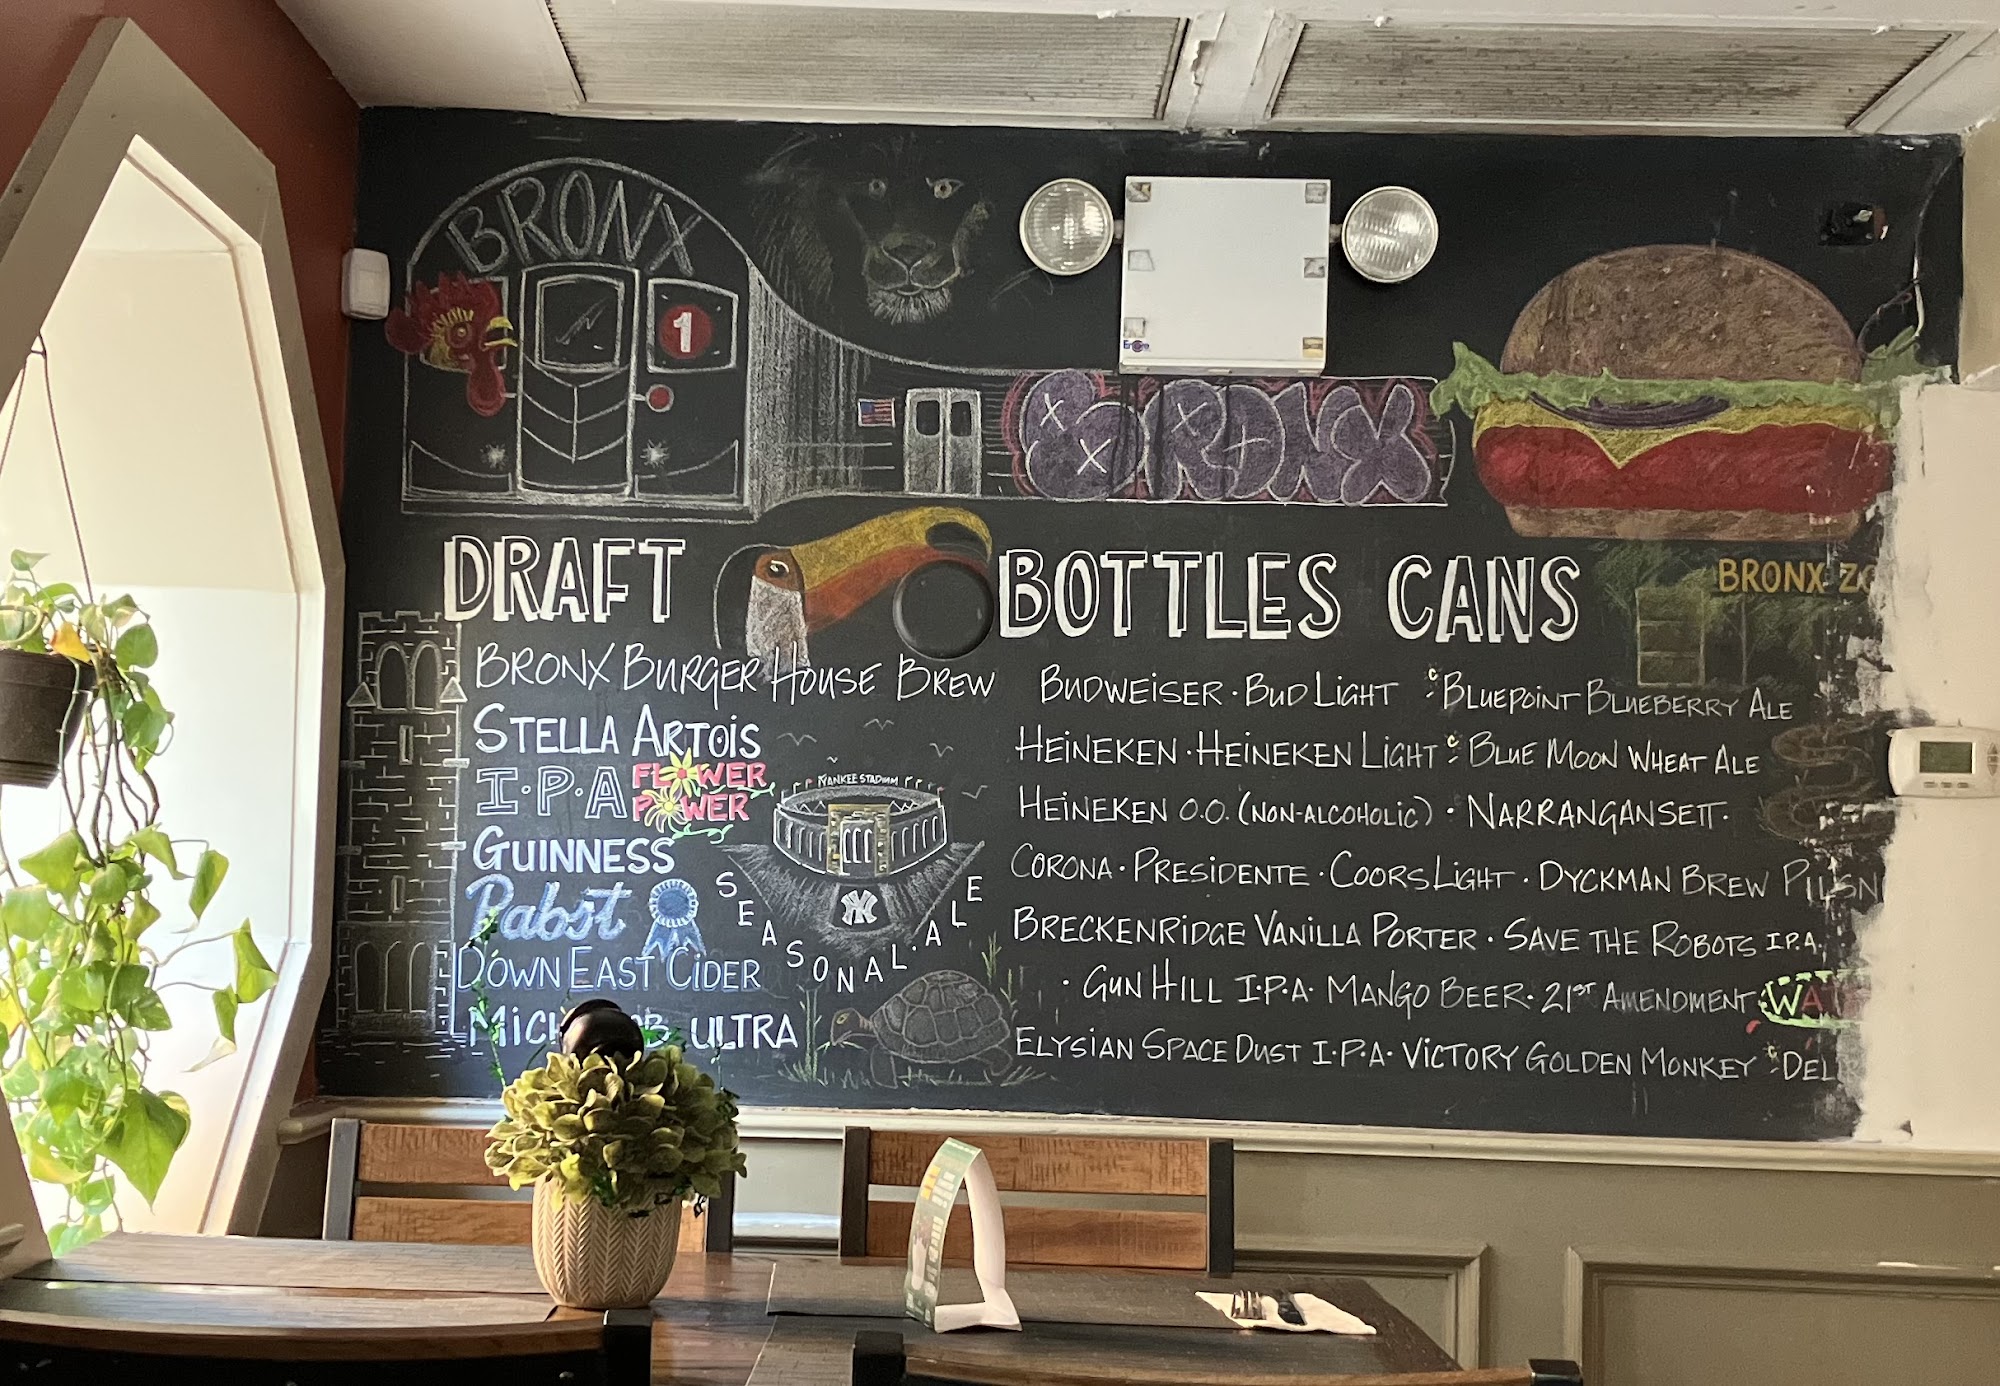 BRONX
1
BRONX
DRAFT
BOTTLES CANS
BRONX
BRONX BURGER HOUSE BREW
STELLA ARTOIS
I·P·A FLOWER POWER
GUINNESS
Pabst
DOWN EAST CIDER
ULTRA
YANKEE STADIUM
NY
SEASONAL·ALE
BUDWEISER · BUD LIGHT BLUEPOINT BLUEBERRY ALE
HEINEKEN · HEINEKEN LIGHT BLUE MOON WHEAT ALE
HEINEKEN O.O. (NON-ALCOHOLIC) · NARRANGANSETT ·
CORONA · PRESIDENTE · COORS LIGHT · DYCKMAN BREW PILSN
BRECKENRIDGE VANILLA PORTER · SAVE THE ROBOTS I.P.A.
· GUN HILL I·P·A· MANGO BEER · 21ST AMENDMENT
ELYSIAN SPACE DUST I·P·A· VICTORY GOLDEN MONKEY